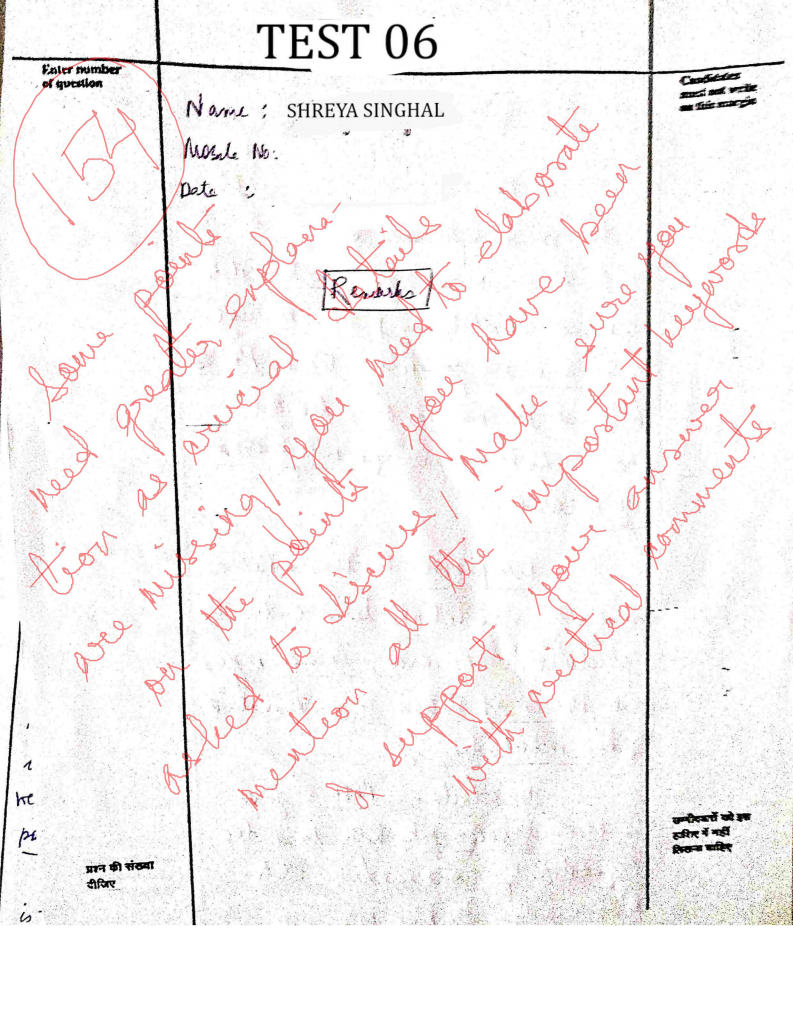 TEST 06
Enter number
of question
Candidates
must not write
on this margin
154
Name : SHREYA SINGHAL
No:
Date :
Remarks
Some points
need greater explana-
tion as crucial details
are missing/ you need to elaborate
on the points you have been
asked to discuss/ make sure you
mention all the important keywords
& support your answer
with critical comments
he
is
प्रश्न की संख्या
दीजिए
उम्मीदवारों को इस
हाशिए में नहीं
लिखना चाहिए